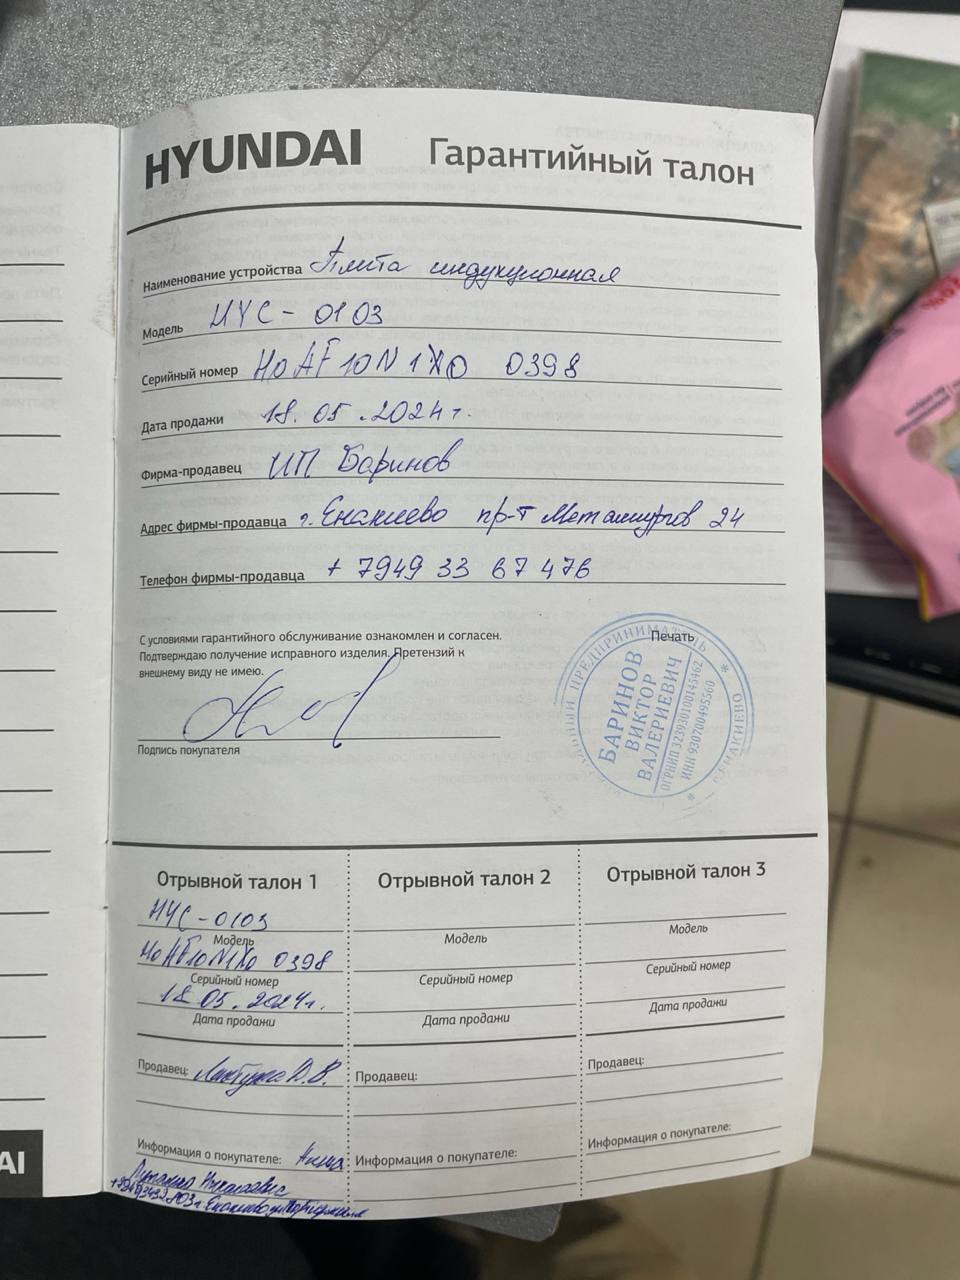 HYUNDAI Гарантийный талон
Наименование устройства Плита индукционная
Модель HYC - 0103
Серийный номер HoAF10N1X0 0398
Дата продажи 18.05.2024г.
Фирма-продавец ИП Баринов
Адрес фирмы-продавца г. Енакиево пр-т Металлургов 24
Телефон фирмы-продавца + 7949 33 67 476
С условиями гарантийного обслуживание ознакомлен и согласен.
Подтверждаю получение исправного изделия. Претензий к
внешнему виду не имею.
Печать
БАРИНОВ
ВИКТОР
ВАЛЕРИЕВИЧ
ОГРНИП 323930100145462
ИНН 930700495560
ПРЕДПРИНИМАТЕЛЬ
* Г.ЕНАКИЕВО *
Подпись покупателя
Отрывной талон 1
HYC-0103
Модель
HoAF10N1X0 0398
Серийный номер
18.05.2024г.
Дата продажи
Продавец: Д.В.
Информация о покупателе:
Отрывной талон 2
Модель
Серийный номер
Дата продажи
Продавец:
Информация о покупателе:
Отрывной талон 3
Модель
Серийный номер
Дата продажи
Продавец:
Информация о покупателе:
AI